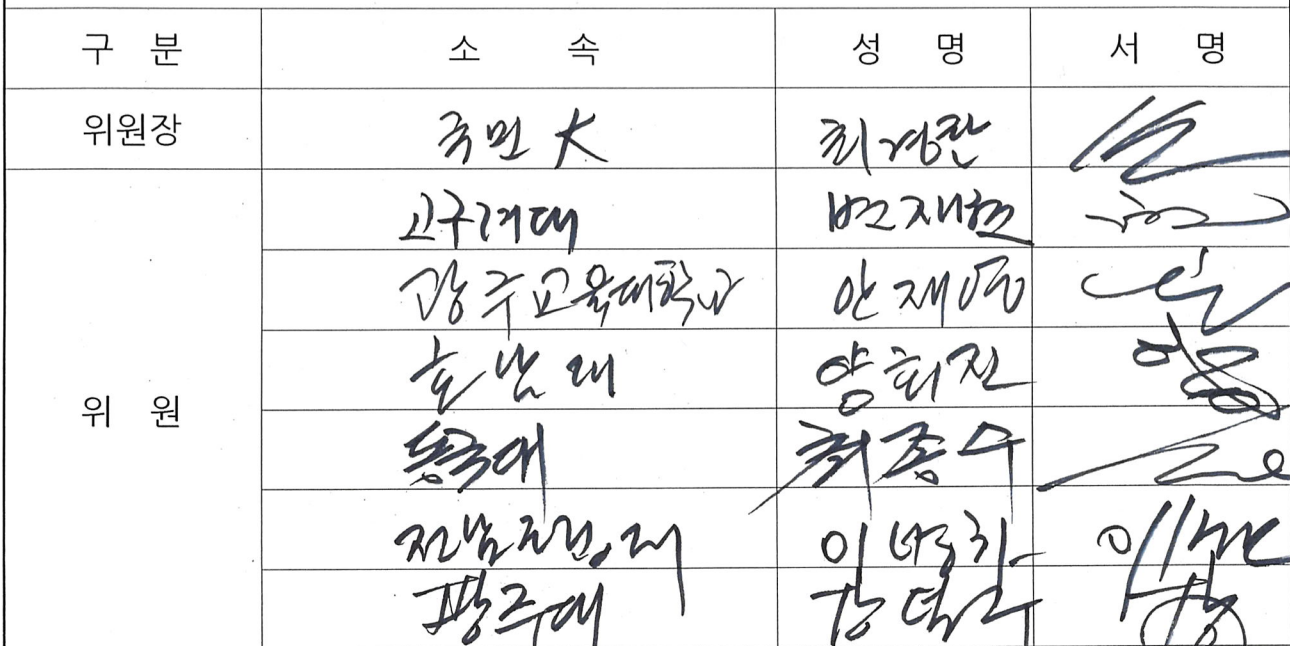 구 분 소 속 성 명 서 명
위원장 국민大 최경란
고구려대 변재현
광주교육대학교 안재영
위 원 호남대 양회진
동국대 최종수
전남도립대 이병학
광주대 강덕수